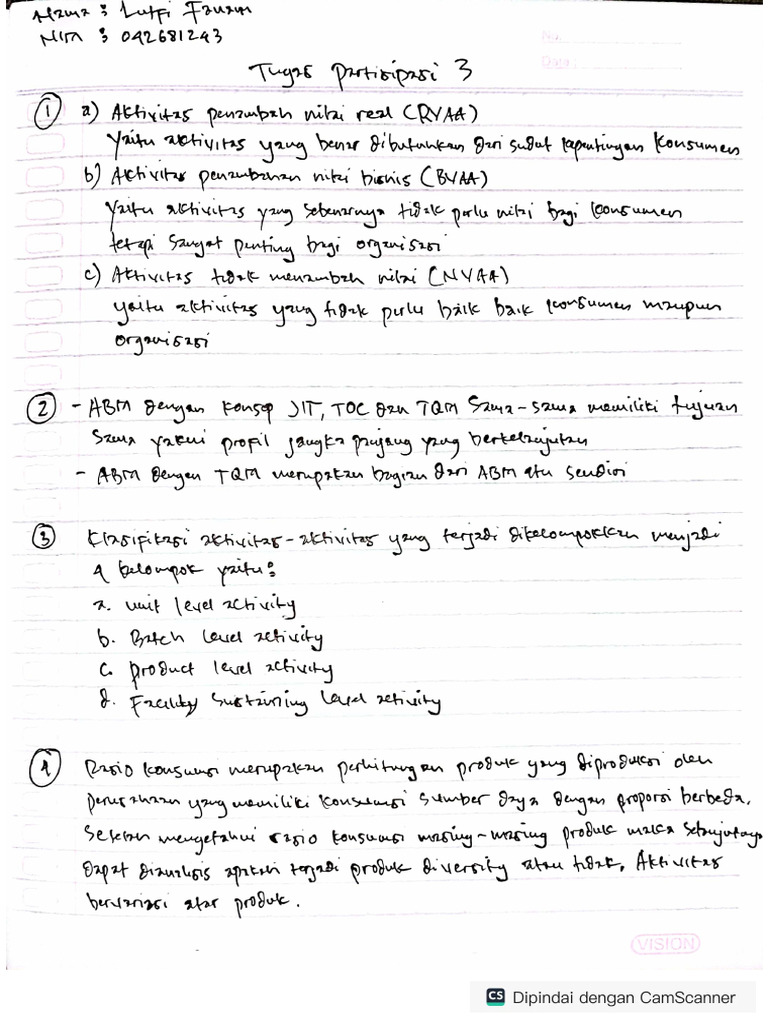 Nama : Lutfi Fauzan
NIM : 042681243
No.
Date :
Tugas Partisipasi 3
1 a) Aktivitas penambah nilai real (RVAA)
Yaitu aktivitas yang benar dibutuhkan dari sudut kepentingan konsumen
b) Aktivitas penambahan nilai bisnis (BVAA)
Yaitu aktivitas yang sebenarnya tidak perlu nilai bagi konsumen
tetapi sangat penting bagi organisasi
c) Aktivitas tidak menambah nilai (NVAA)
yaitu aktivitas yang tidak perlu baik baik konsumen maupun
organisasi
2 - ABM dengan konsep JIT, TOC dan TQM Sama-sama memiliki tujuan
Sama yakni profil jangka panjang yang berkelanjutan
- ABM dengan TQM merupakan bagian dari ABM itu sendiri
3 Klasifikasi aktivitas-aktivitas yang terjadi dikelompokkan menjadi
4 kelompok yaitu :
a. unit level activity
b. Batch level activity
c. product level activity
d. Facility sustaining level activity
4 Rasio konsumsi merupakan perhitungan produk yang diproduksi oleh
perusahaan yang memiliki konsumsi sumber daya dengan proporsi berbeda.
Setelah mengetahui rasio konsumsi masing-masing produk maka selanjutnya
dapat dianalisis apakah terjadi produk diversity atau tidak. Aktivitas
bervariasi atar produk.
VISION
CS Dipindai dengan CamScanner